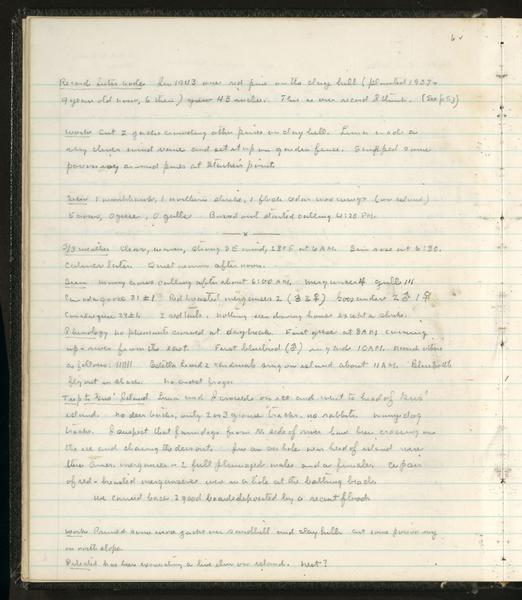 Record Internodes In 1943 one red pine on the clay hill (planted 1937 -
9 years old now, 6 then) grew 43 inches. This is our record I think. (See p 53)
Work Cut 2 jacks crowding other pines on clay hill. Luna made a
very clever wind vane and set it up on garden fence. Scraped some
poison ivy around pines at
Seen 1 marshhawk, 1 northern shrike, 1 flock cedar waxwings (on island)
5 crows, 0 geese, 0 gulls. Barred owl started calling 4:20 P.M.
x
3/3 weather Clear, warm, strong SE wind, 28°F at 6 AM. Sun rose at 6:30.
Calmer later. Quiet warm afternoon.
Seen Many crows calling after about 6:00 A.M. mergansers gulls
Canada geese 21 ± 1 Red breasted mergansers 2 Goosander 2♂ 1♀
nothing seen driving home except a shrike.
Phenology No pheasants crowed at daybreak. First geese at 8 AM coming
up-river from the east. First bluebird (♂) in yard 10 AM.
as follows: Estella heard 2 cardinals sing on island about 11 AM.
fly out in shack. no
Trip to Island Luna and I crossed on ice and went to head of
island. No deer tracks, only 2 or 3 grouse tracks, no rabbits. Many dog
tracks. I suspect that farm dogs from N side of river have been crossing on
the ice and chasing the deer out. In an ice hole near head of island were
three mergansers - 2 full plumaged males and a female. A pair
of red-breasted mergansers was in a hole at the bathing beach
We carried back 2 good boards deposited by a recent flood
Work Pruned some more jacks on sandhill and clay hill. Cut some poison ivy
on north slope.
Pileated has been excavating a live elm on island. Nest?